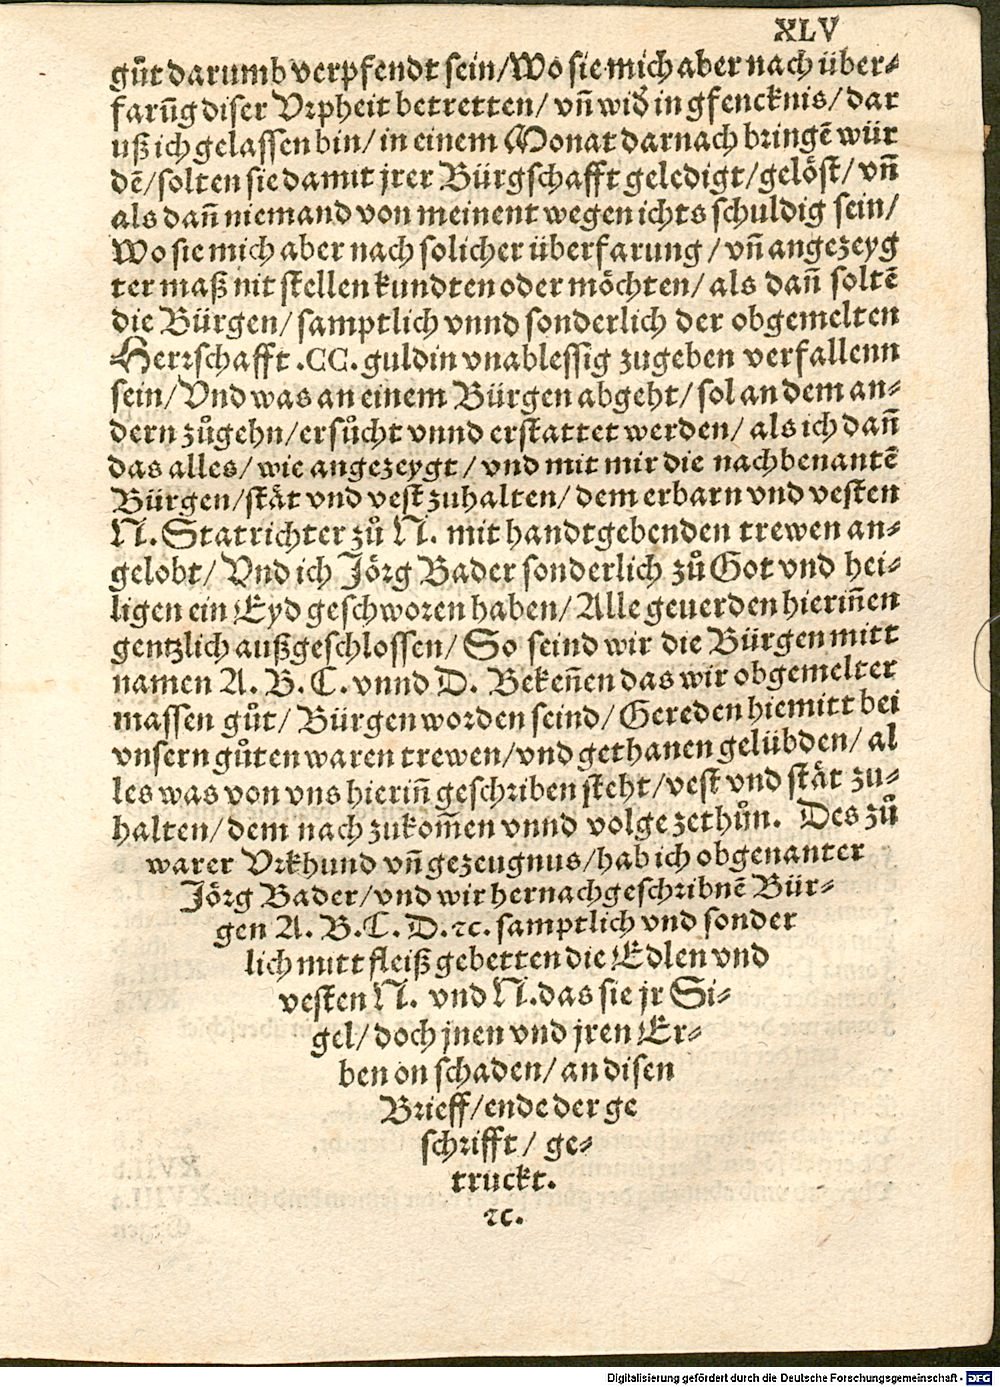 XLV
gůt darumb verpfendt sein/Wo sie mich aber nach über-
farūg diser Vrpheit betretten/ vñ wið in gfencknis/dar
uß ich gelassen bin/ in einem Monat darnach bringē wür
dē/solten sie damit jrer Bürgschafft geledigt/gelöst/ vñ
als dañ niemand von meinent wegen ichts schuldig sein/
Wo sie mich aber nach solicher überfarung/vñ angezeyg
ter maß nit stellen kundten oder möchten/ als dañ soltē
die Bürgen/ samptlich vnnd sonderlich der obgemelten
Herrschafft .CC. guldin vnablessig zugeben verfallenn
sein/Vnd was an einem Bürgen abgeht/sol an dem an-
dern zůgehn/ersůcht vnnd erstattet werden/ als ich dañ
das alles/wie angezeygt/vnd mit mir die nachbenantē
Bürgen/stät vnd vest zuhalten/ dem erbarn vnd vesten
N. Statrichter zů N. mit handtgebenden trewen an-
gelobt/Vnd ich Jörg Bader sonderlich zů Got vnd hei-
ligen ein Eyd geschworen haben/Alle geuerden hieriñen
gentzlich außgeschlossen/So seind wir die Bürgen mitt
namen A. B. C. vnnd D. Bekeñen das wir obgemelter
massen gůt/Bürgen worden seind/Gereden hiemitt bei
vnsern gůten waren trewen/vnd gethanen gelübden/ al
les was von vns hieriñ geschriben steht/vest vnd stät zu-
halten/dem nach zukom̄en vnnd volge zethůn. Des zů
warer Vrkhund vñ gezeugnus/hab ich obgenanter
Jörg Bader/vnd wir hernachgeschribnē Bür-
gen A. B. C. D. ꝛc. samptlich vnd sonder
lich mitt fleiß gebetten die Edlen vnd
vesten N. vnd N. das sie jr Si-
gel/doch jnen vnd jren Er-
ben on schaden/an disen
Brieff/ende der ge
schrifft/ ge-
truckt.
ꝛc.
Digitalisierung gefördert durch die Deutsche Forschungsgemeinschaft - DFG